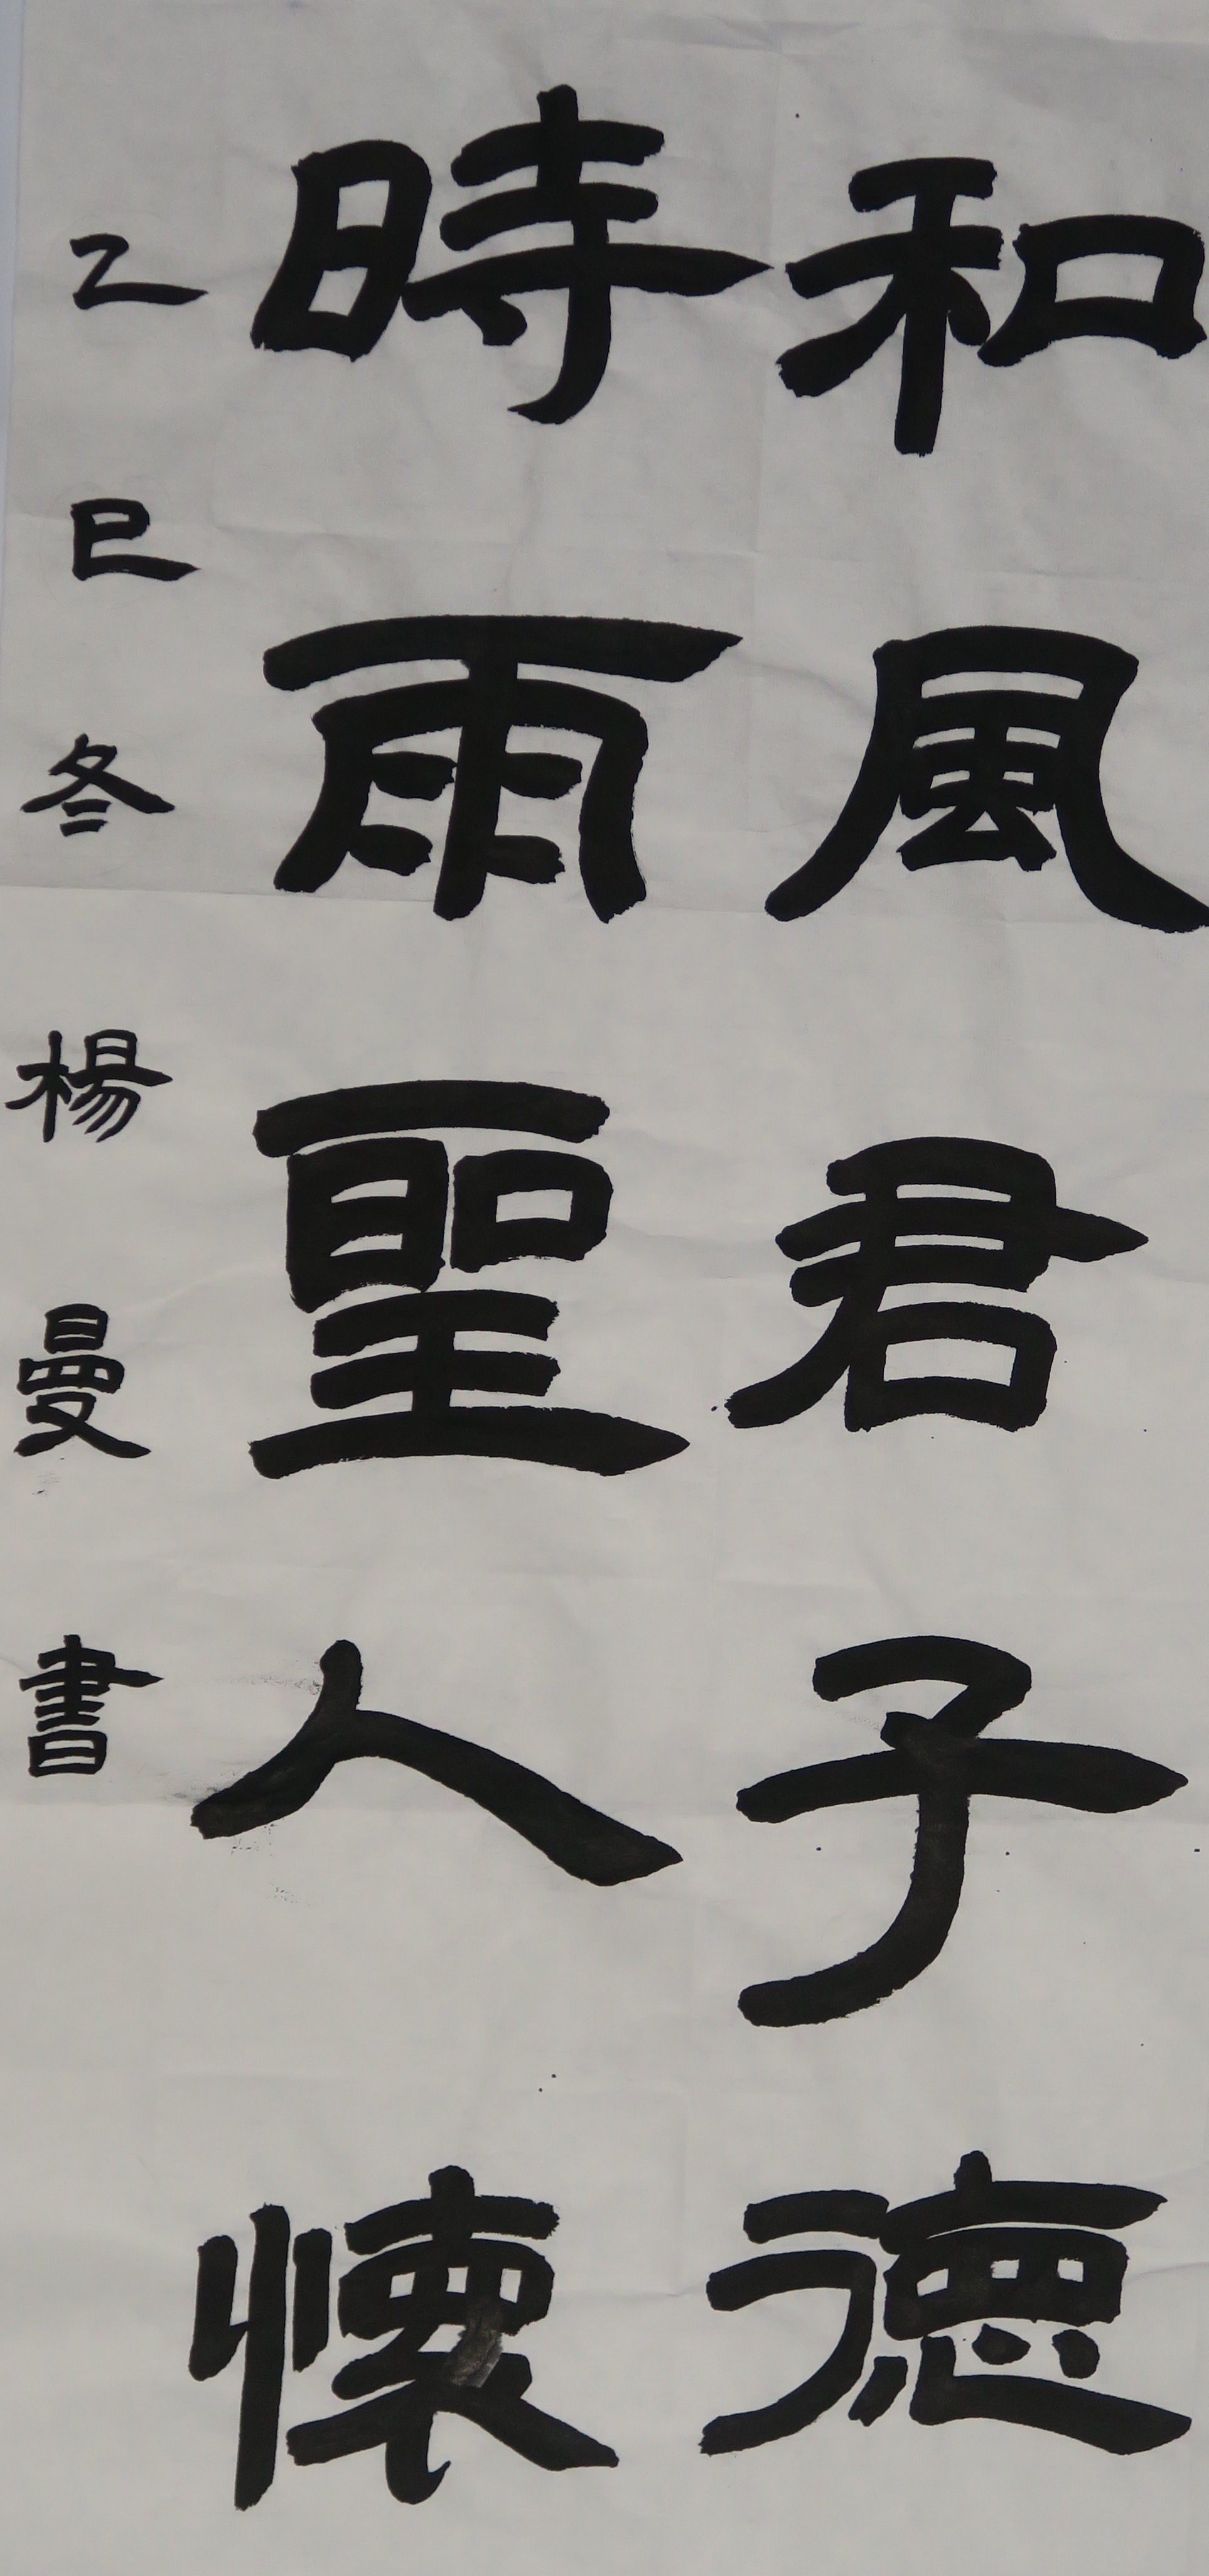 和風君子德
時雨聖人懷
乙巳冬楊曼書